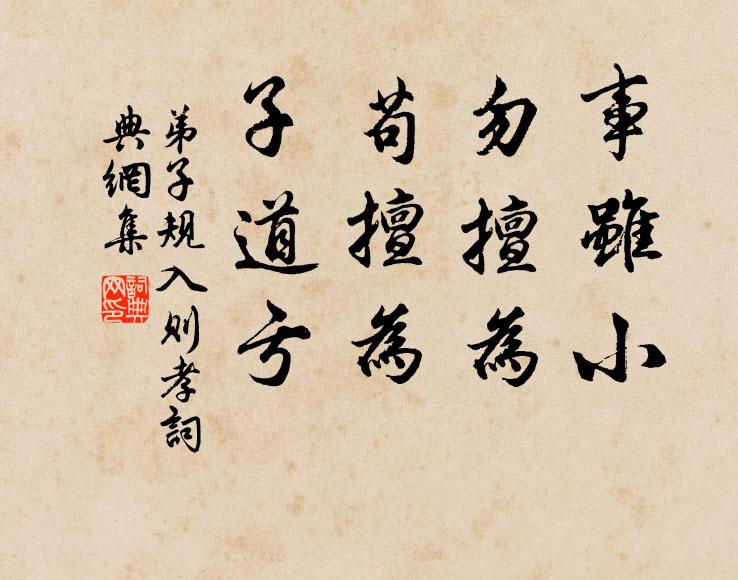 事雖小
勿擅為
苟擅為
子道亏
弟子規入則孝詞
典網集
詞典
网印